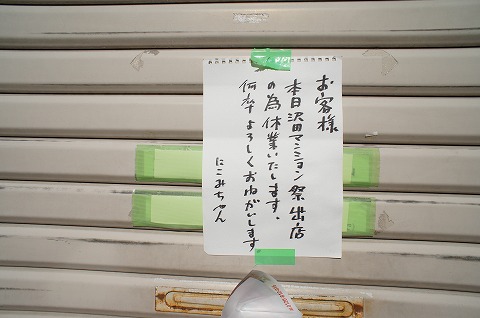 お客様
本日沢田マンション祭出店
の為休業いたします。
何卒よろしくおねがいします
にこみちゃん